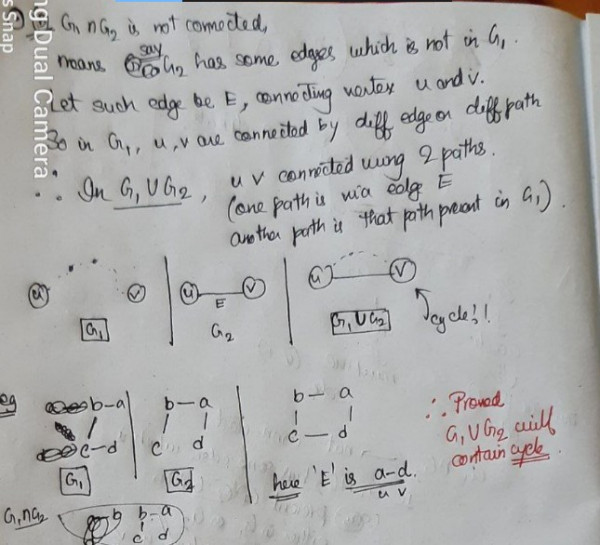 G1 ∩ G2 is not connected,
means say G2 has some edges which is not in G1.
Let such edge be E, connecting vertex u and v.
So in G1, u, v are connected by diff edge or diff path
∴ In G1 U G2, u v connected using 2 paths.
(one path is via edge E
another path is that path present in G1).
u v
G1
u v
E
G2
u v
G1 U G2
cycle!!
eg
b-a
c-d
G1
b-a
c d
G2
b-a
c-d
here 'E' is a-d.
u v
∴ Proved
G1 U G2 will
contain cycle.
G1 ∩ G2
b b-a
c d
ng Dual Camera
s Snap